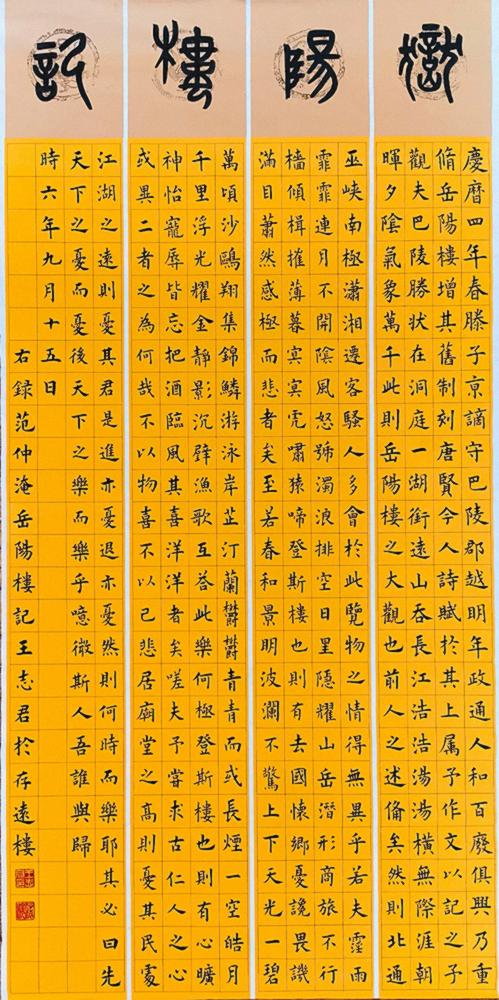 嶽陽樓記
慶曆四年春滕子京謫守巴陵郡越明年政通人和百廢俱興乃重
脩岳陽樓增其舊制刻唐賢今人詩賦於其上属予作文以記之予
觀夫巴陵勝狀在洞庭一湖銜遠山吞長江浩浩湯湯橫無際涯朝
暉夕陰氣象萬千此則岳陽樓之大觀也前人之述俻矣然則北通
巫峽南極瀟湘遷客騷人多會於此覽物之情得無異乎若夫霪雨
霏霏連月不開陰風怒號濁浪排空日星隱耀山岳潛形商旅不行
檣傾楫摧薄暮冥冥虎嘯猿啼登斯樓也則有去國懷鄉憂讒畏譏
滿目蕭然感極而悲者矣至若春和景明波瀾不驚上下天光一碧
萬頃沙鷗翔集錦鱗游泳岸芷汀蘭鬱鬱青青而或長煙一空皓月
千里浮光耀金靜影沉璧漁歌互答此樂何極登斯樓也則有心曠
神怡寵辱皆忘把酒臨風其喜洋洋者矣嗟夫予嘗求古仁人之心
或異二者之為何哉不以物喜不以己悲居廟堂之高則憂其民處
江湖之遠則憂其君是進亦憂退亦憂然則何時而樂耶其必曰先
天下之憂而憂後天下之樂而樂乎噫微斯人吾誰與歸
時六年九月十五日
右録范仲淹岳陽樓記王志君於存遠樓